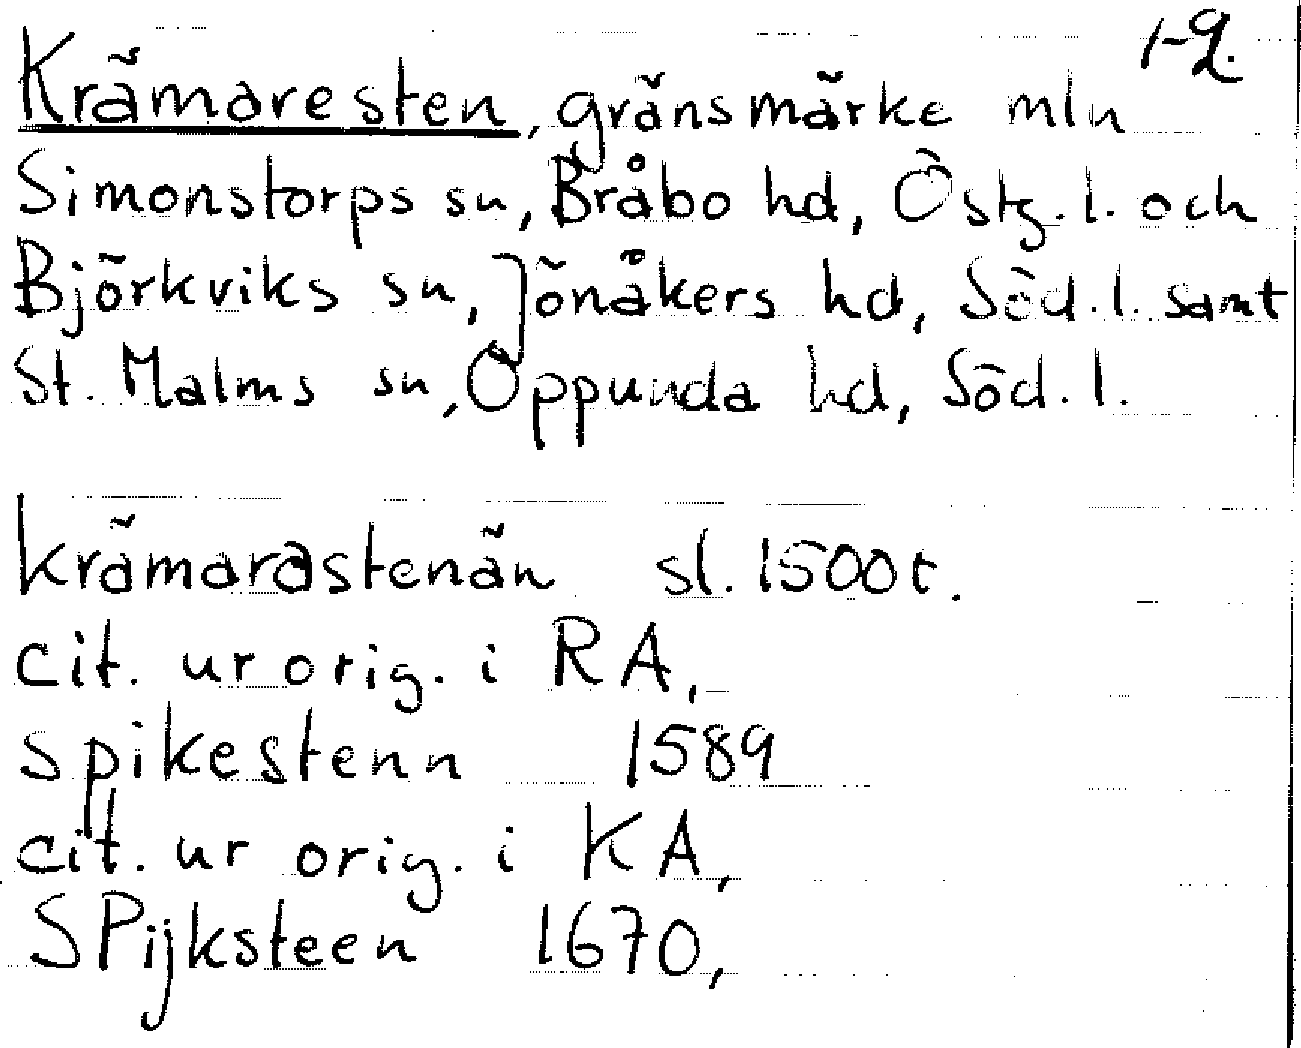 1-2.
Krämaresten, gränsmärke mln
Simonstorps sn, Bråbo hd, Östg. l. och
Björkviks sn, Jönåkers hd, Söd. l. samt
St. Malms sn, Oppunda hd, Söd. l.
krämarastenän sl. 1500t.
cit. ur orig. i RA,
spikestenn 1589
cit. ur orig. i KA,
SPijksteen 1670,